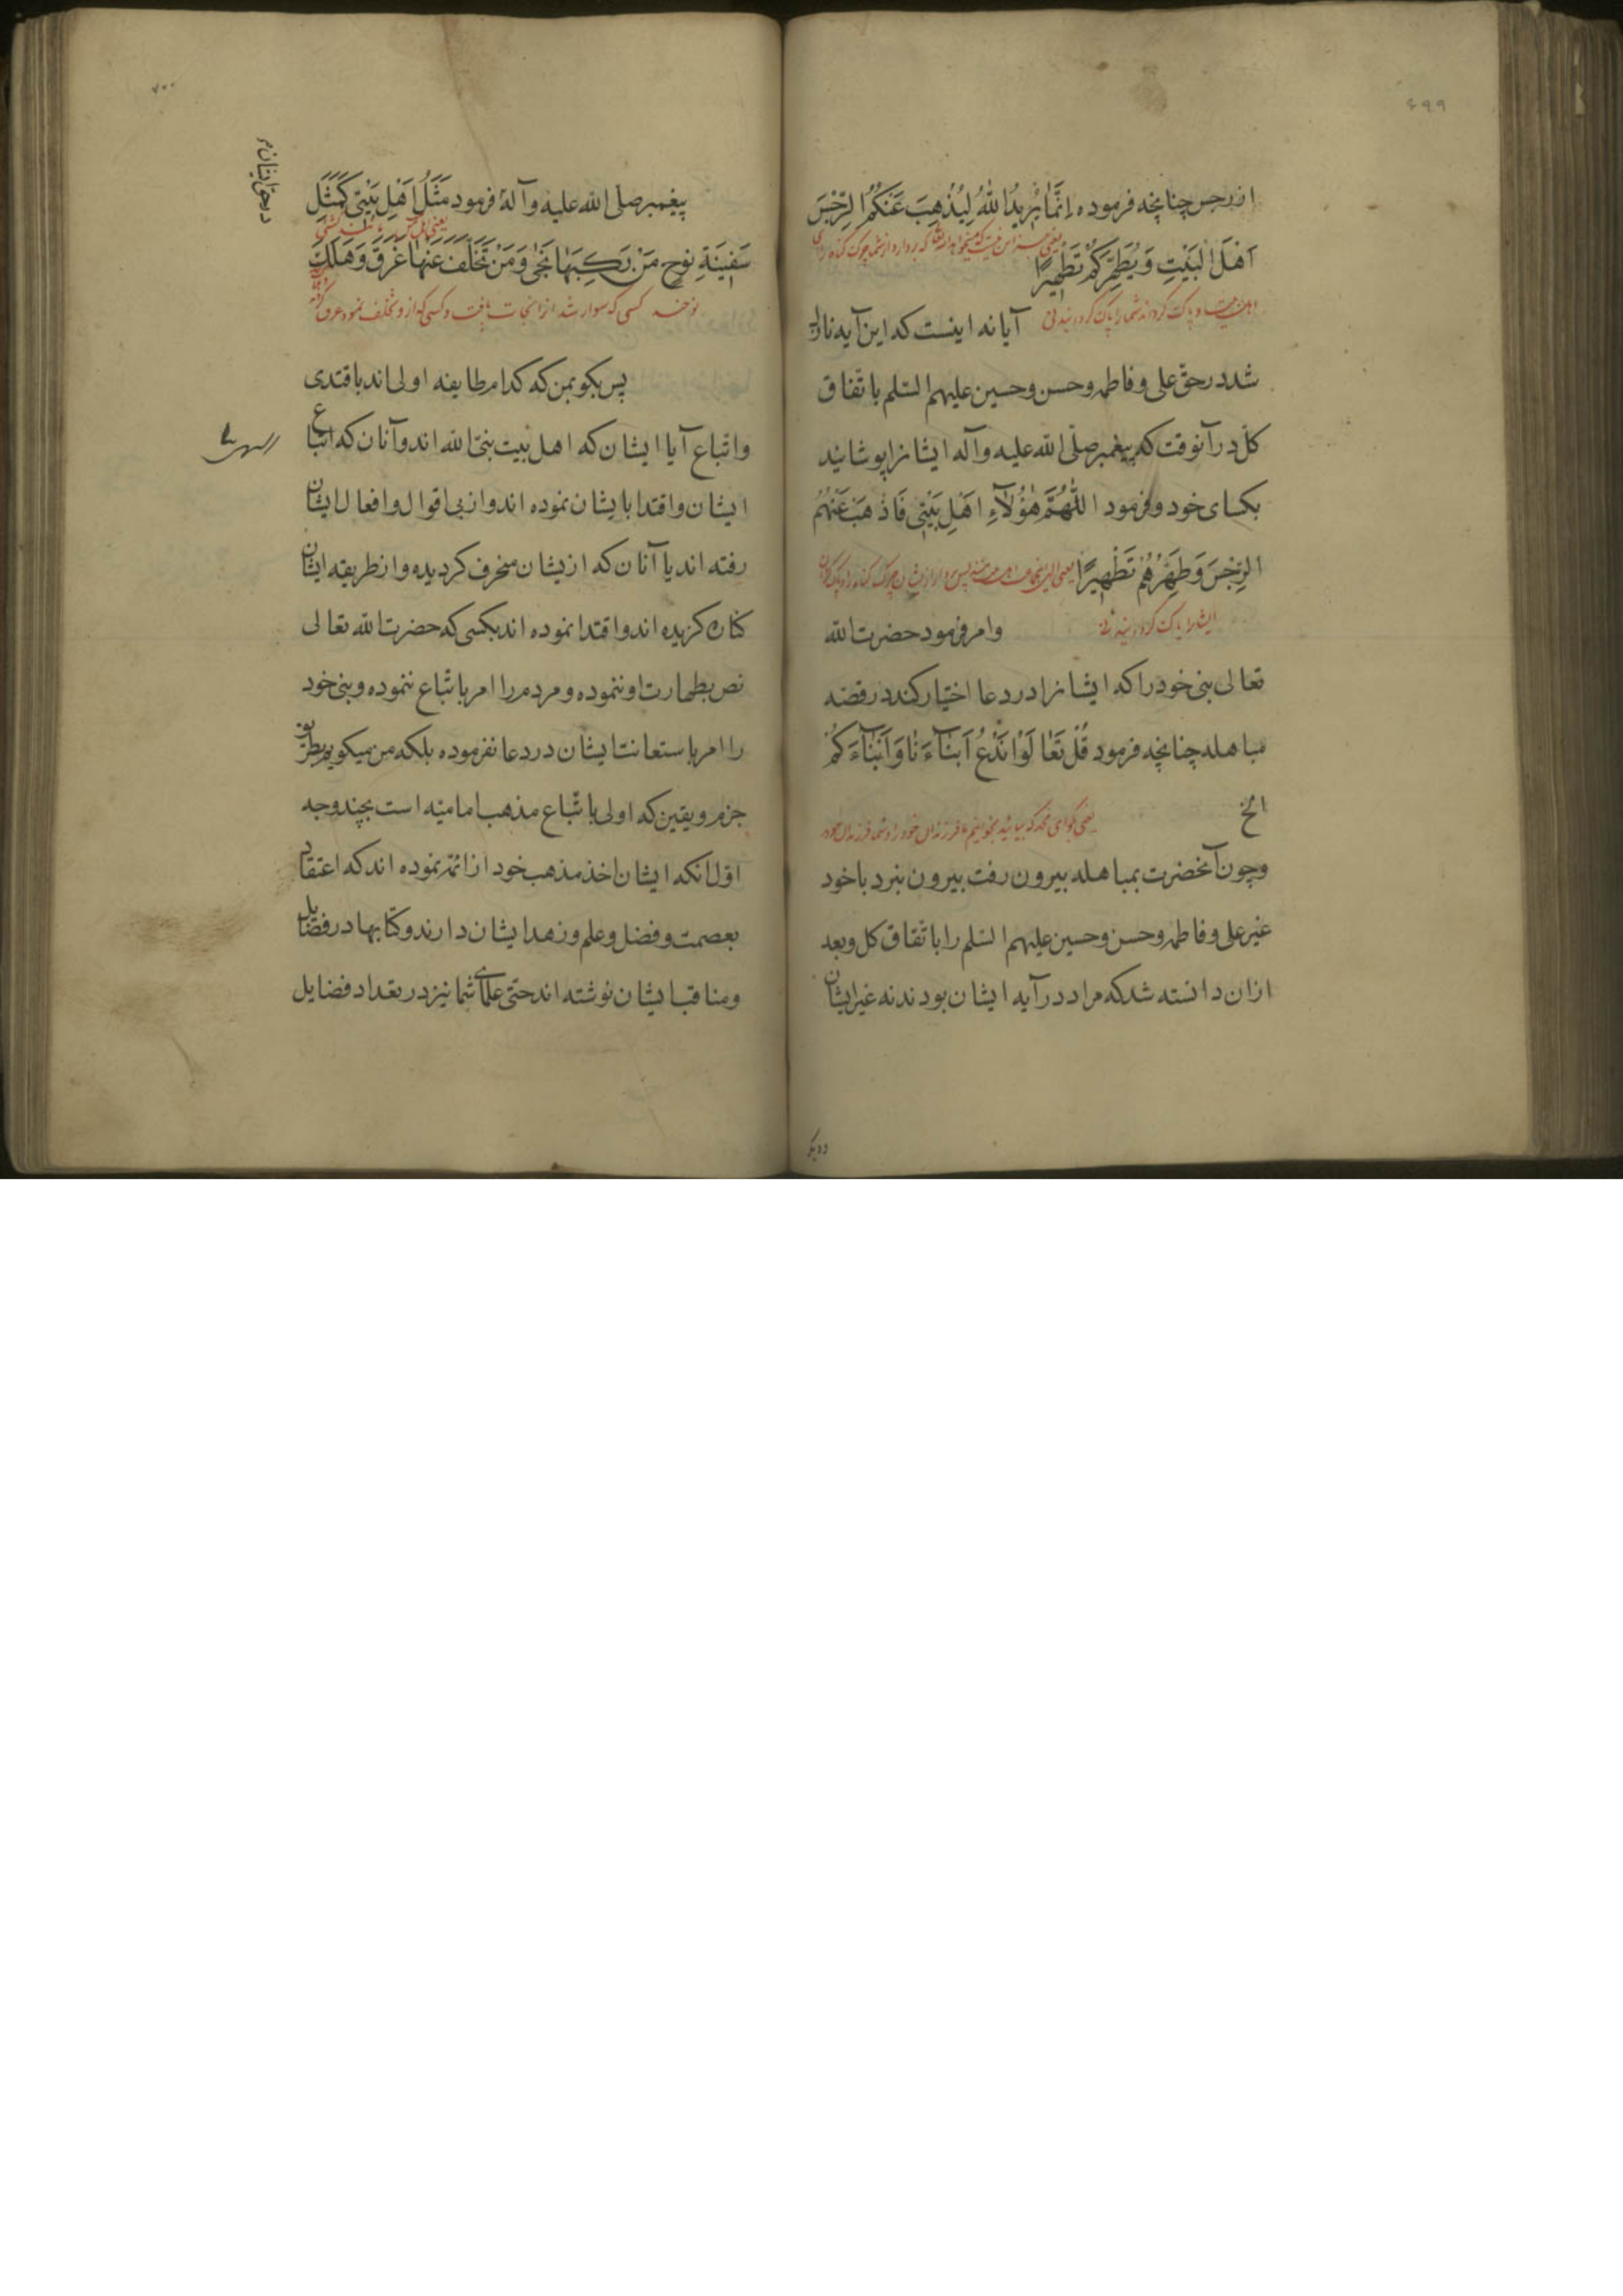 ۶۹۹
از رجس چنانچه فرموده اِنَّمَا يُرِيدُ اللّٰهُ لِيُذْهِبَ عَنْكُمُ الرِّجْسَ
یعنی جز این نیست که میخواهد الله تعالی که بردارد از شما چرک گناه را ای
اَهْلَ الْبَيْتِ وَيُطَهِّرَكُمْ تَطْهِيرًا
اهل بیت و پاک کرداند شما را پاک کردانیدنی آیا نه اینست که این آیه نازل
شد در حق علی و فاطمه و حسن و حسین علیهم السّلم باتّفاق
کلّ در آنوقت که پیغمبر صلّی الله علیه وآله ایشانرا پوشانید
بکسای خود و فرمود اللّٰهُمَّ هٰؤُلَآءِ اَهْلِ بَيْتِي فَاذْهَبْ عَنْهُمُ
الرِّجْسَ وَطَهِّرْهُمْ تَطْهِيرًا یعنی الهی اینجماعت اهل بیت منند پس بردار از ایشان چرک گناه را و پاک گردان
ایشانرا پاک کردانیدنی وامر فرمود حضرت الله
تعالی نبی خود را که ایشانرا در دعا اختیار کند در قصّه
مباهله چنانچه فرمود قُلْ تَعَالَوْا نَدْعُ اَبْنَآءَنَا وَاَبْنَآءَكُمْ
الخ یعنی بگو ای محمد که بیائید بخوانیم ما فرزندان خود را و شما فرزندان خود
وچون آنحضرت بمباهله بیرون رفت بیرون نبرد با خود
غیر علی و فاطمه و حسن و حسین علیهم السّلم را باتّفاق کل و بعد
ازان دانسته شد که مراد در آیه ایشان بودند نه غیر ایشان
۷۰۰
در حق ایشان
پیغمبر صلّی الله علیه وآله فرمود مَثَلُ اَهْلِ بَيْتِي كَمَثَلِ
سَفِينَةِ نُوحٍ مَنْ رَكِبَهَا نَجٰى وَمَنْ تَخَلَّفَ عَنْهَا غَرَقَ وَهَلَكَ
کسی که سوار شد انرا نجات یافت و کسی که ازو تخلف نمود غرق
پس بکو بمن که کدام طایفه اولی اند باقتدی
واتّباع آیا ایشان که اهل بیت نبیّ الله اند و آنان که اتباع
ایشان و اقتدا بایشان نموده اند و از پی اقوال و افعال ایشان
رفته اند یا آنان که ازیشان منحرف کردیده و از طریقه ایشان
کناره کزیده اند و اقتدا نموده اند بکسی که حضرت الله تعالی
نص بطهارت او ننموده و مردم را امر باتّباع ننموده و نبی خود
را امر باستعانت ایشان در دعا نفرموده بلکه من میکویم بطریق
جزم و یقین که اولی باتّباع مذهب امامیّه است بچند وجه
اوّل انکه ایشان اخذ مذهب خود از ائمّه نموده اند که اعتقاد
بعصمت و فضل و علم و زهد ایشان دارند و کتابها در فضایل
و مناقب ایشان نوشته اند حتی علمای شما نیز در تعداد فضایل